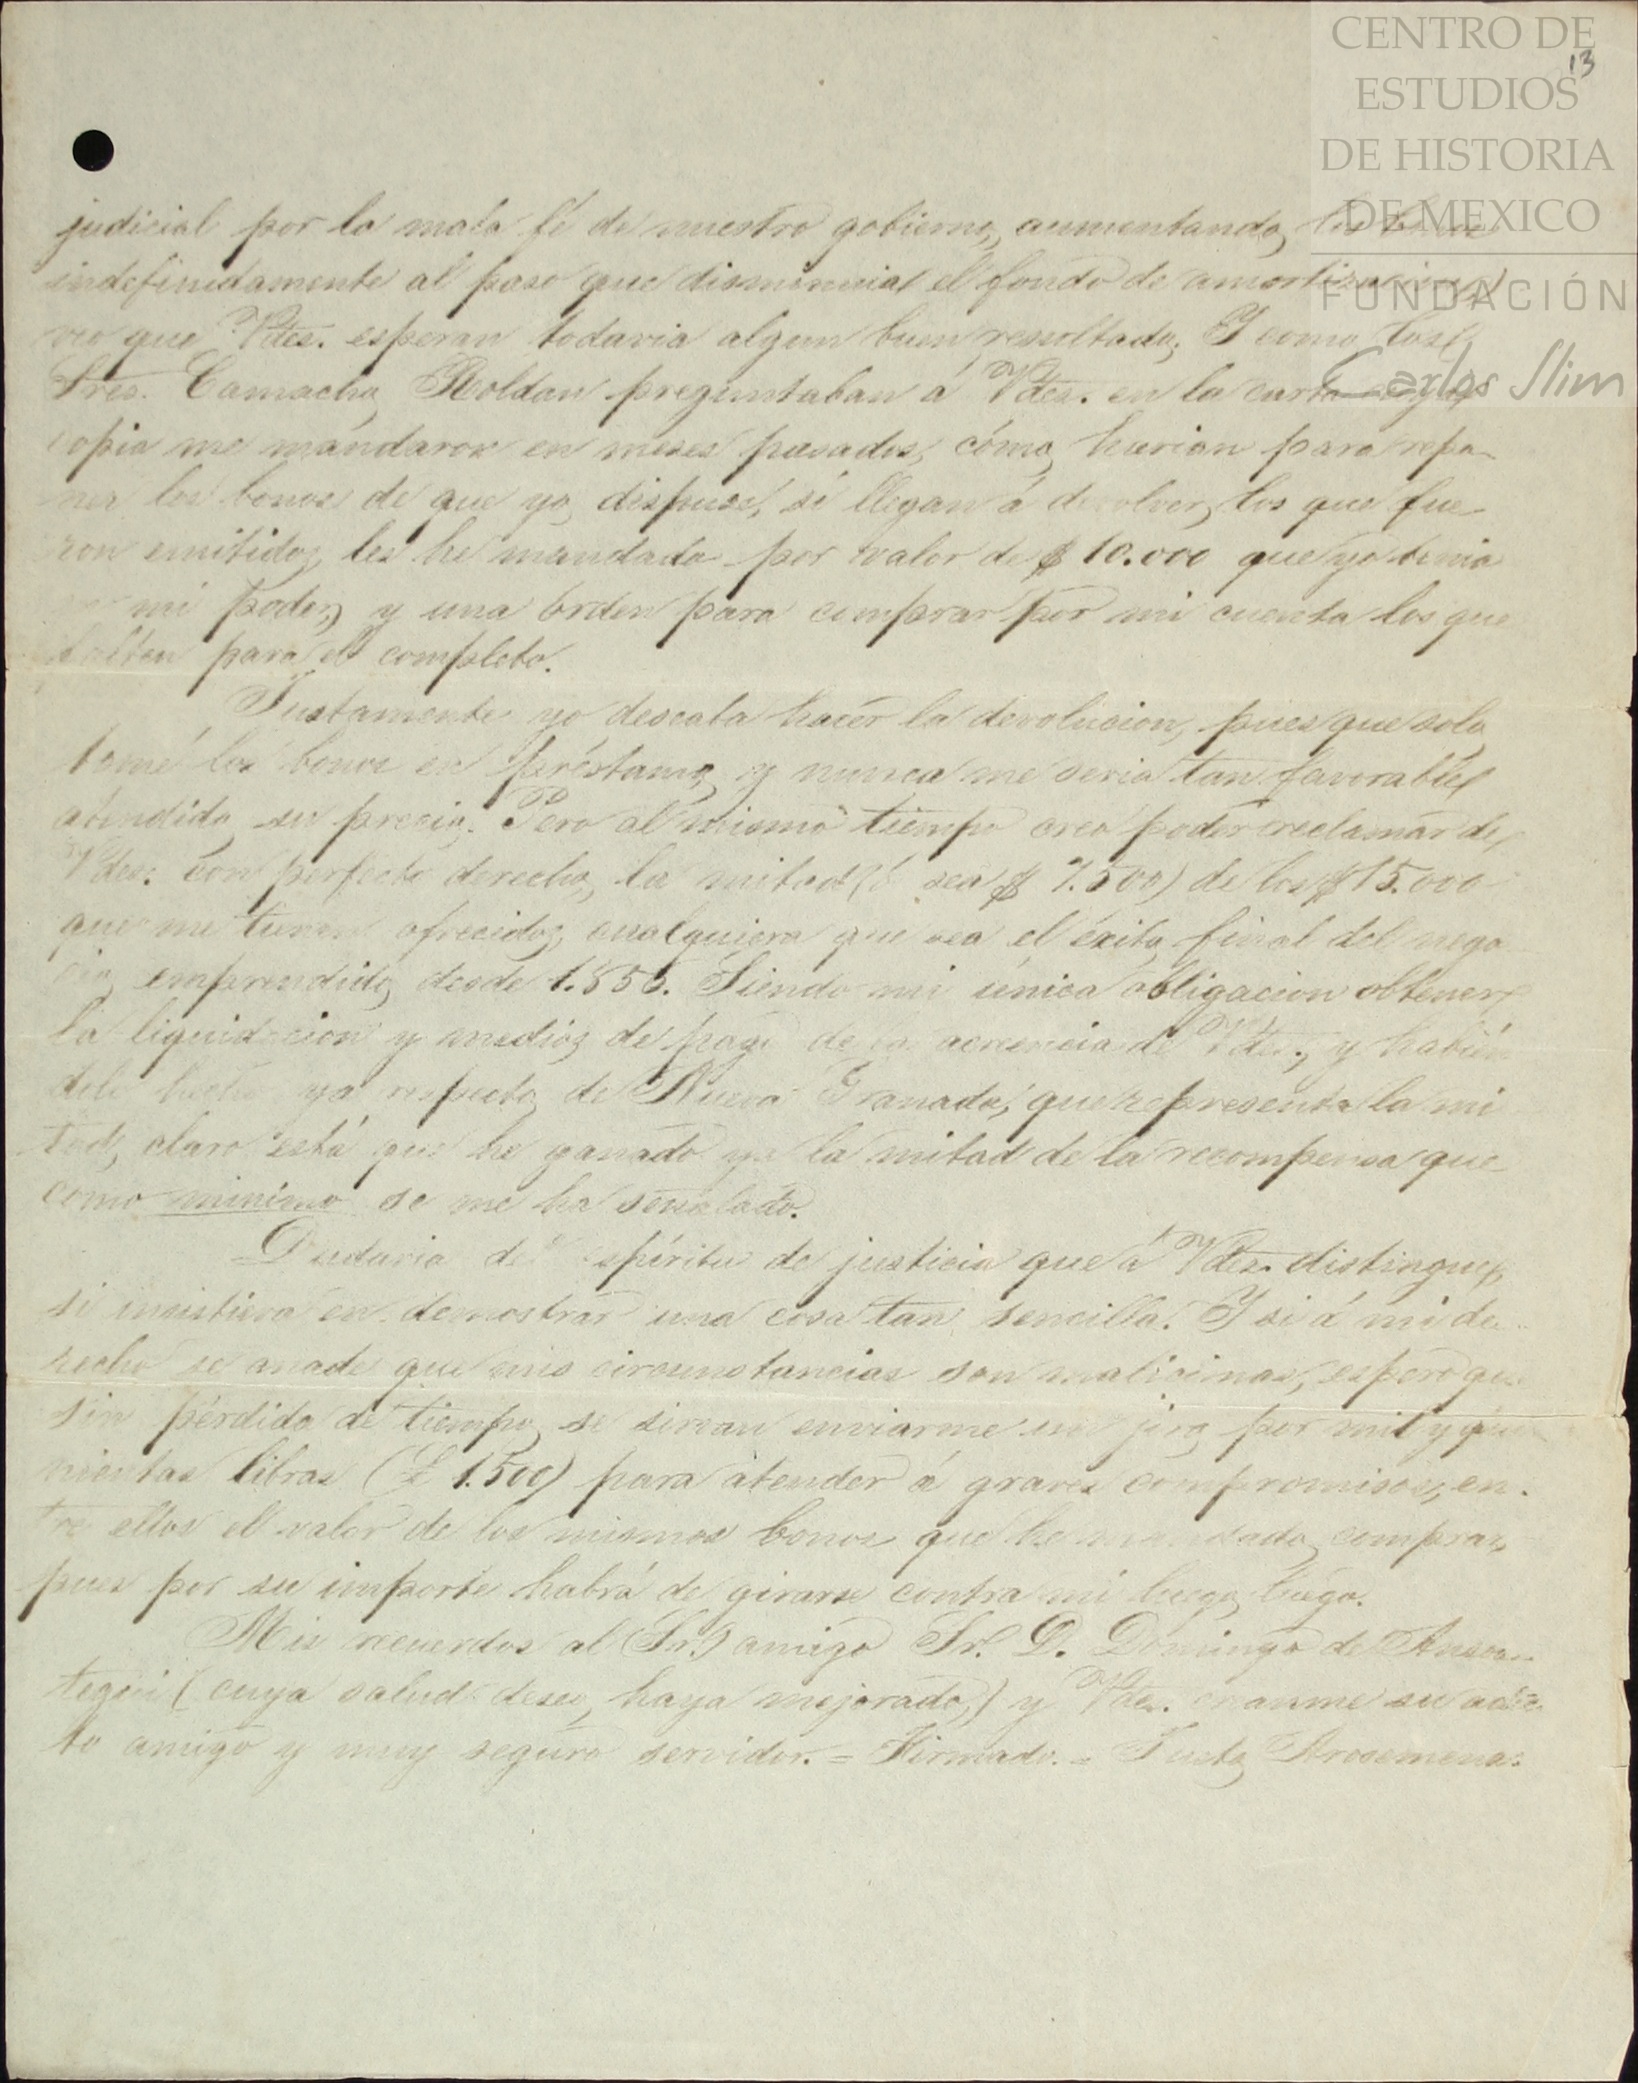 CENTRO DE
13
ESTUDIOS
DE HISTORIA
DE MEXICO
FUNDACIÓN
Carlos Slim
judicial por la mala fé de nuestro gobierno, aumentando
indefinidamente al paso que disminuia el fondo de amortizacion,
veo que Vdes. esperan todavia algun buen resultado. I como los
Sres. Camacho Roldan preguntaban á Vdes. en la carta cuya
copia me mandaron en meses pasados, cómo harian para repo-
ner los bonos de que yo dispuse, si llegan á devolver los que fue-
ron emitidos, les he mandado por valor de $ 10.000 que yo tenia
en mi poder, y una órden para comprar por mi cuenta los que
falten para el completo.
Justamente yo deseaba hacer la devolucion, pues que solo
tomé los bonos en préstamo, y nunca me seria tan favorable
atendido su precio. Pero al mismo tiempo creo poder reclamar de
Vdes. con perfecto derecho, la mitad (ó sea $ 7.500) de los $ 15.000
que me tienen ofrecidos, cualquiera que sea el éxito final del nego
cio emprendido desde 1.855. Siendo mi única obligacion obtener
la liquidacion y medios de pago de la acreencia de Vdes., y habién
dolo hecho ya respecto de Nueva Granada, que representa la mi
tad, claro está que he ganado ya la mitad de la recompensa que
como minimo se me ha señalado.
Dudaria del espíritu de justicia que á Vdes. distingue,
si insistiera en demostrar una cosa tan sencilla. I si á mi de-
recho se anade que mis circunstancias son malisimas, espero que
sin pérdida de tiempo se sirvan enviarme un jiro por mil y qui
nientas libras (£ 1.500) para atender á graves compromisos, en-
tre ellos el valor de los mismos bonos que he mandado comprar,
pues por su importe habrá de girarse contra mi luego luego.
Mis recuerdos al (Sr.) amigo Sr. D. Domingo de Ansoa-
tegui (cuya salud deseo haya mejorado,) y Vdes. creanme su adic-
to amigo y muy seguro servidor. = Firmado. = Justo Arosemena.